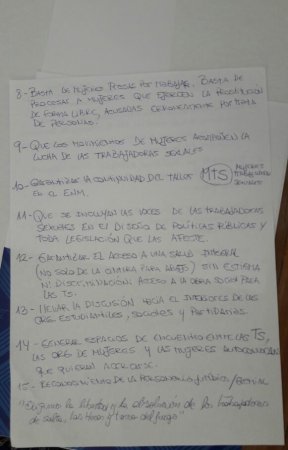 8- BASTA DE MUJERES PRESAS POR TRABAJAR. BASTA DE
PROCESAR A MUJERES QUE EJERCEN LA PROSTITUCIÓN
DE FORMA LIBRE, ACUSADAS ERRONEAMENTE POR TRATA
DE PERSONAS.
9- QUE LOS MOVIMIENTOS DE MUJERES ACOMPAÑEN LA
LUCHA DE LAS TRABAJADORAS SEXUALES
10- GARANTIZAR LA CONTINUIDAD DEL TALLER MTS MUJERES TRABAJADORAS SEXUALES
EN EL ENM.
11- QUE SE INCLUYAN LAS VOCES DE LAS TRABAJADORAS
SEXUALES EN EL DISEÑO DE POLÍTICAS PÚBLICAS Y
TODA LEGISLACIÓN QUE LAS AFECTE.
12- GARANTIZAR EL ACCESO A UNA SALUD INTEGRAL
(NO SOLO DE LA CINTURA PARA ABAJO) SIN ESTIGMA
NI DISCRIMINACION. ACCESO A LA OBRA SOCIAL PARA
LAS TS.
13- LLEVAR LA DISCUSIÓN HACIA EL INTERIOR DE LAS
ORG. ESTUDIANTILES, SOCIALES Y PARTIDARIAS.
14- GENERAR ESPACIOS DE ENCUENTRO ENTRE LAS TS,
LAS ORG DE MUJERES Y LAS MUJERES AUTOCONVOCADAS
QUE QUIERAN ACERCARSE.
15- RECONOCIMIENTO DE LA PERSONERÍA JURÍDICA/GREMIAL
"Exigimos la libertad y la absolución de las trabajadoras
de salta, las heras y tierra del fuego"